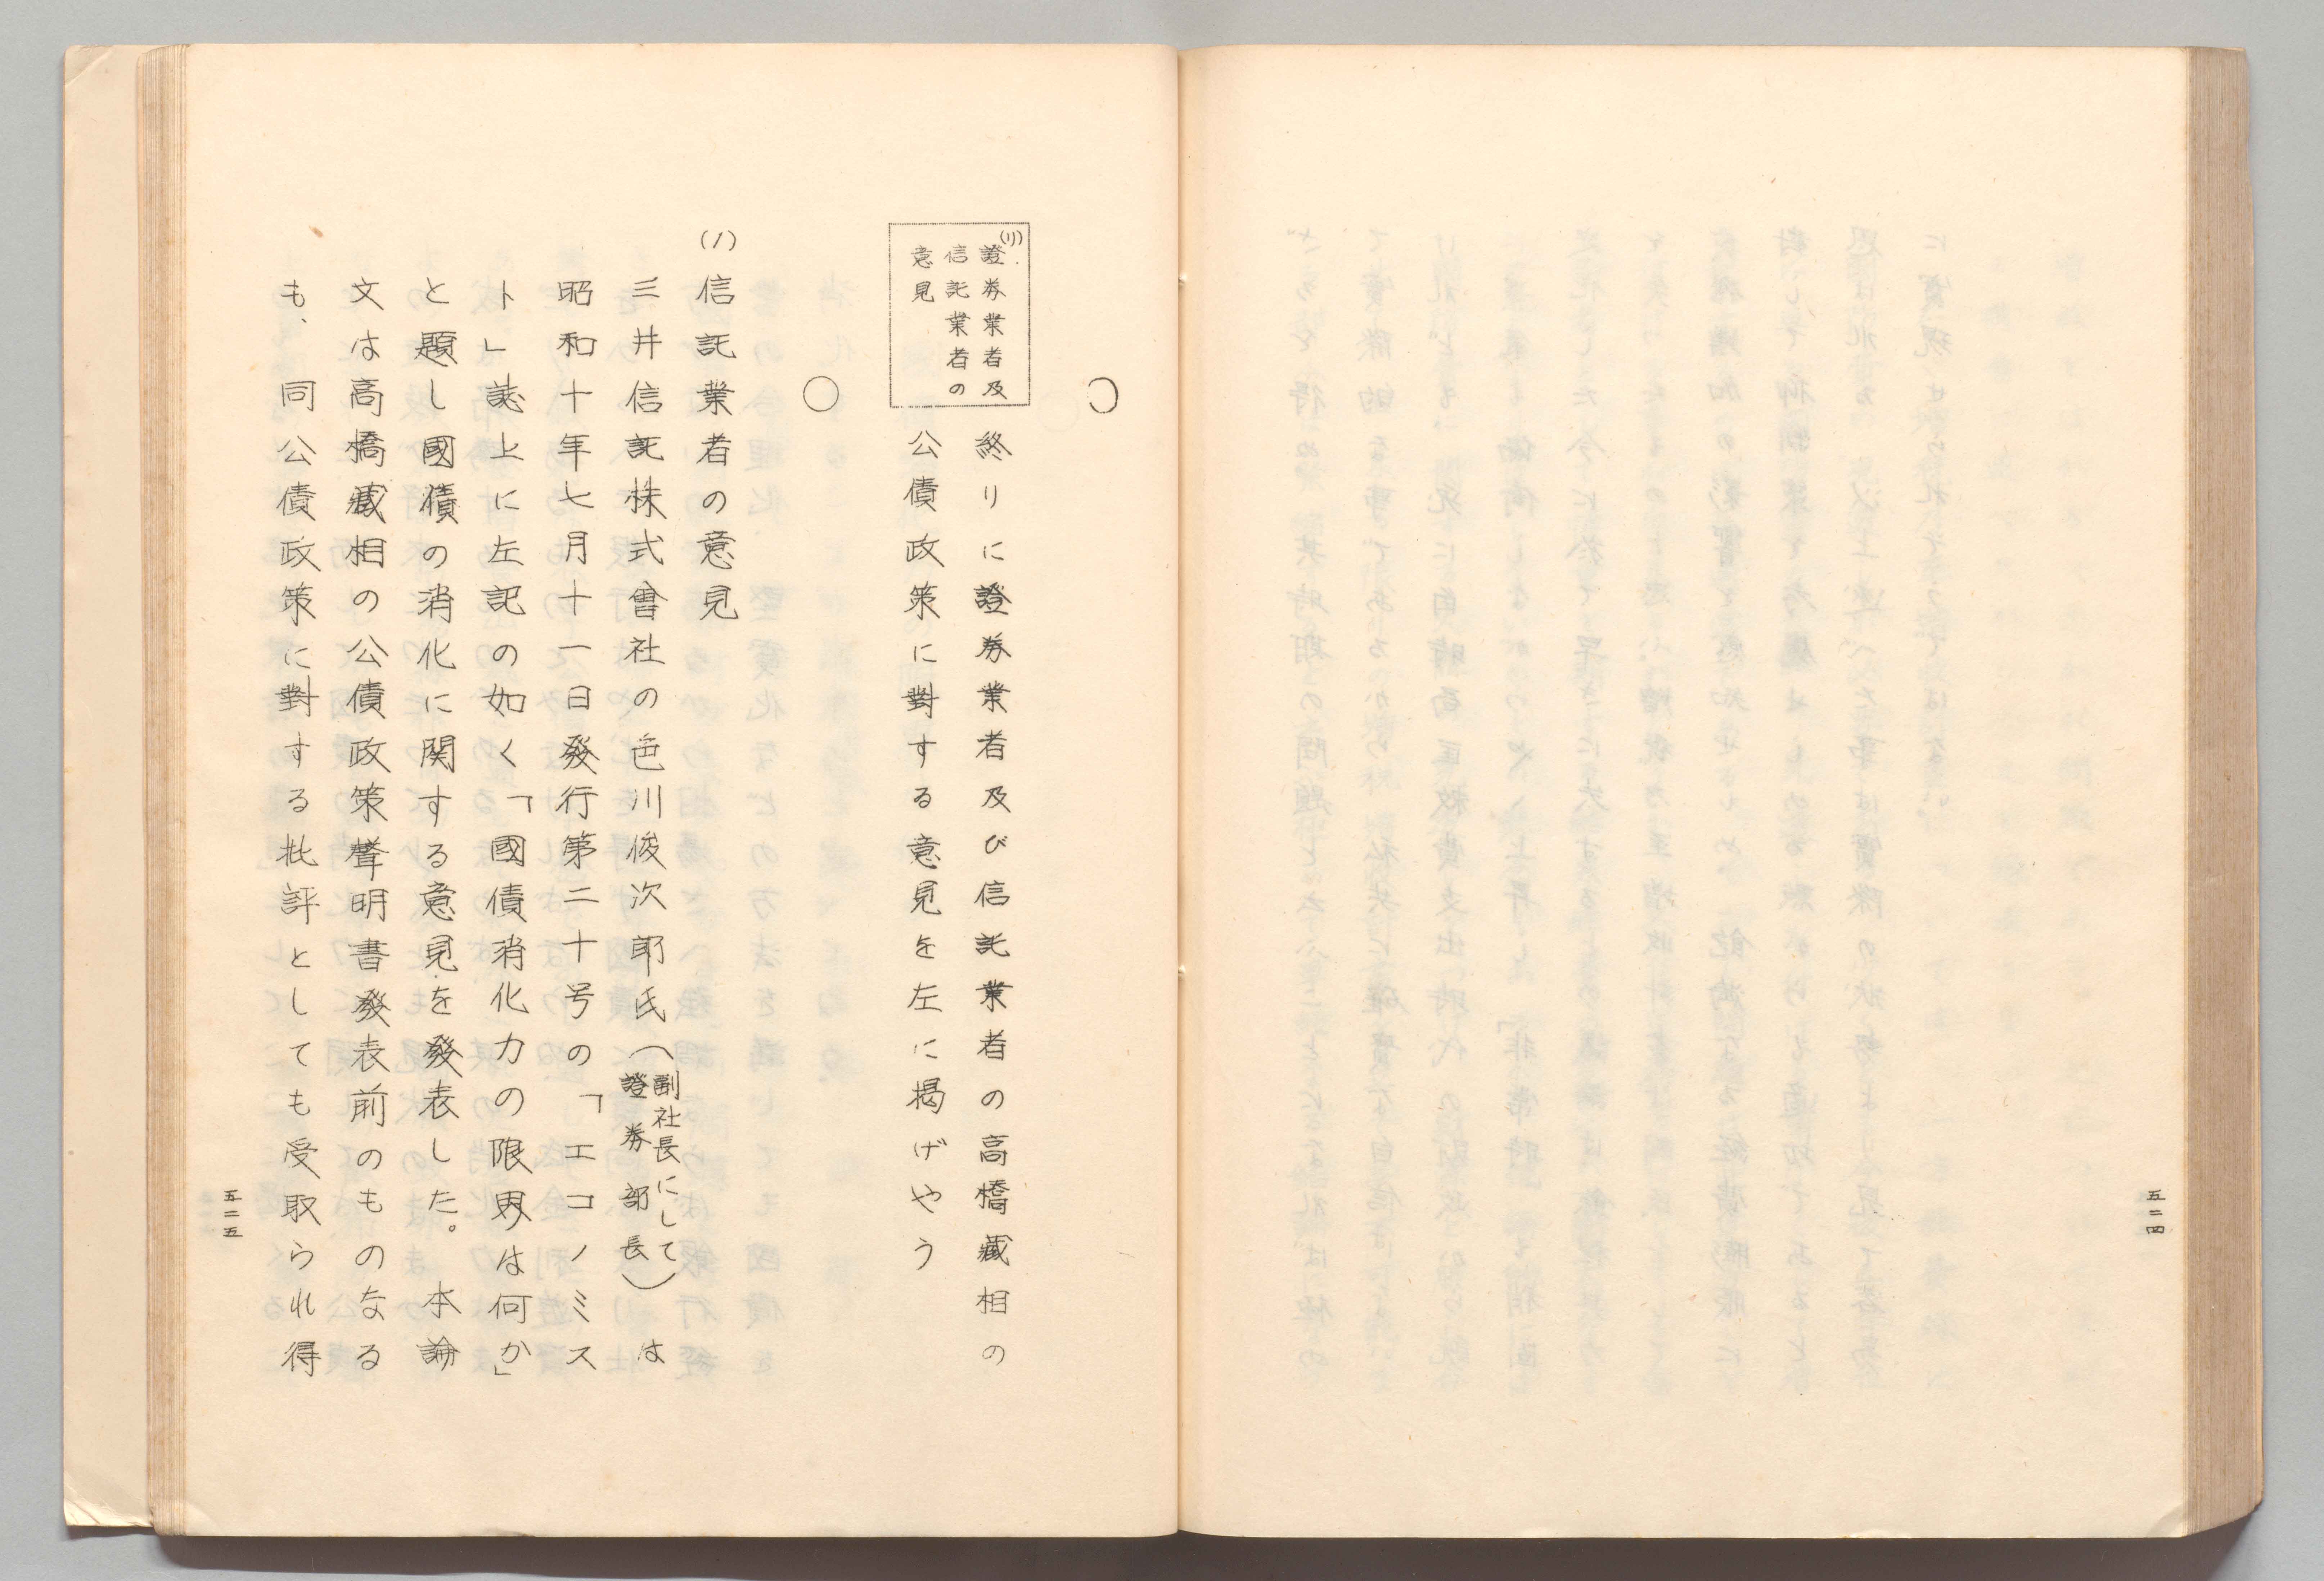 五二四
○
(リ)
證券業者及
信託業者の
意見
終りに證券業者及び信託業者の高橋藏相の
公債政策に對する意見を左に揭げやう
○
(ノ)信託業者の意見
三井信託株式會社の色川俊次郎氏(副社長にして證券部長)は
昭和十年七月十一日發行第二十号の「エコノミス
ト」誌上に左記の如く「國債消化力の限界は何か」
と題し國債の消化に関する意見を發表した。本論
文は高橋藏相の公債政策聲明書發表前のものなる
も、同公債政策に對する批評としても受取られ得
五二五